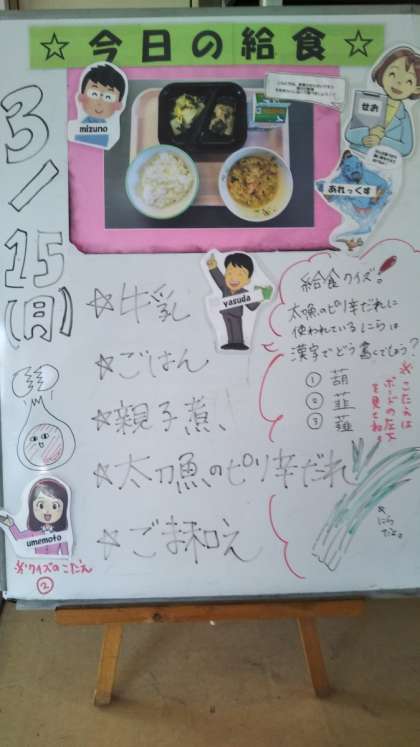 ☆今日の給食☆
mizuno
せお
あれっくす
3/15(月)
yasuda
☆牛乳
☆ごはん
☆親子煮
☆太刀魚のピリ辛だれ
☆ごま和え
給食クイズ。
太魚のピリ辛だれに
使われているにらは
漢字でどう書くでしょう?
①葫
②韮
③薤
※こたえは
ボードの左下
を見てね。
※にら
だよ。
umemoto
※クイズのこたえ
②